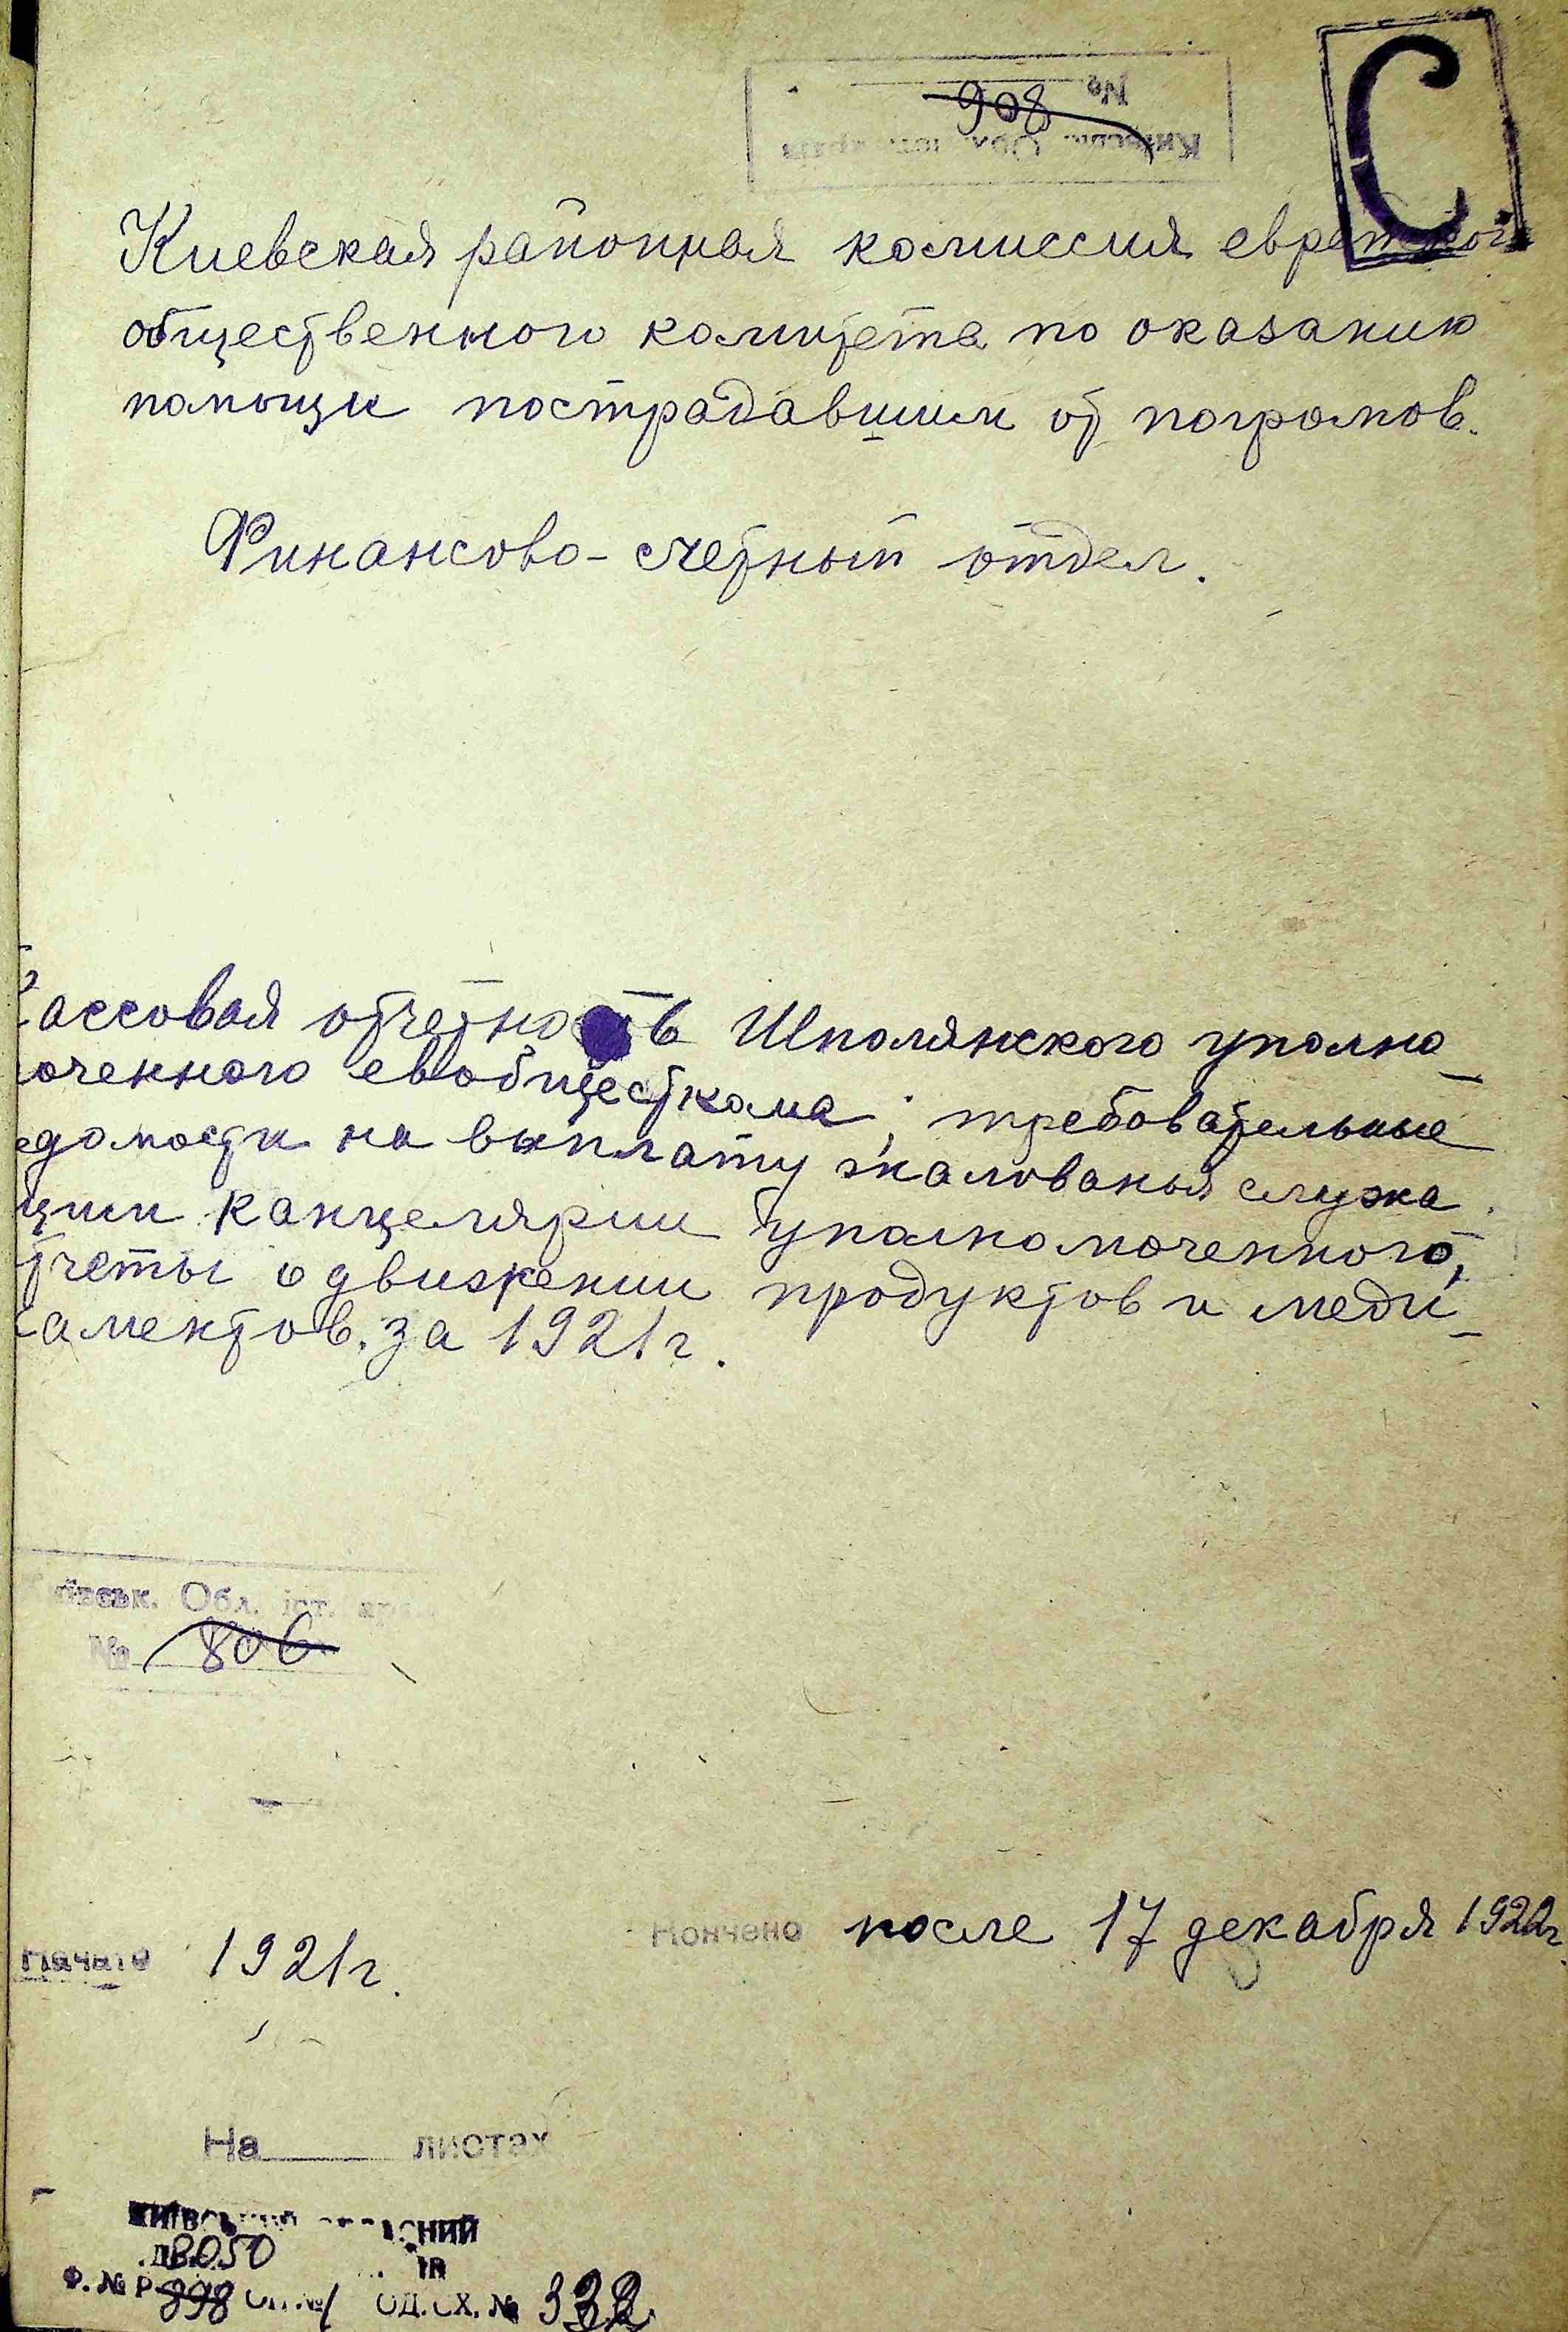 № 908
С
Киевская районная комиссия еврейского
общественного комитета по оказанию
помощи пострадавшим от погромов.
Финансово-счетный отдел.
ассовая отчетность Шполянского уполно_
оченного евобщесткома; требовательные
едомости на выплату жалованья служа
щим канцелярии уполномоченного,
тчеты о движении продуктов и меди_
аментов. за 1921г.
Обл. іст.
№ 806
Начато 1921г.
Кончено после 17 декабря 1922г.
На листах
8050
Ф. № Р 898 ОП.№1 ОД.СХ. № 332